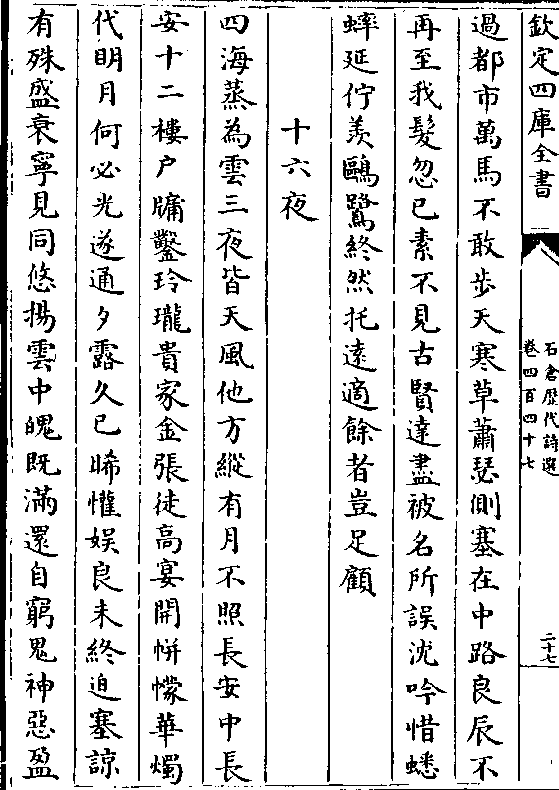 欽定四庫全書
石倉歴代詩選
卷四百四十七
二十七
過都市萬馬不敢歩天寒草蕭瑟側塞在中路良辰不
再至我髮忽已素不見古賢達盡被名所誤沈吟惜蟋
蟀延佇羨鷗鷺終然托遠適餘者豈足顧
十六夜
四海蒸為雲三夜皆天風他方縱有月不照長安中長
安十二樓户牖鑿玲瓏貴家金張徒高宴開帡幪華燭
代明月何必光遂通夕露久已晞懽娱良未終迫塞諒
有殊盛衰寧見同悠揚雲中魄既滿還自窮鬼神惡盈